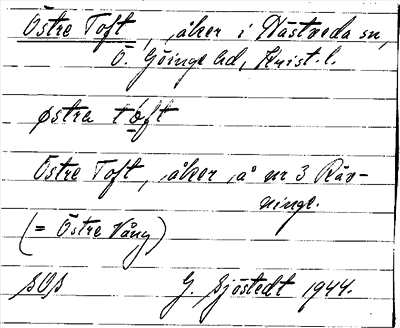 Östre Toft, åker i Hästveda sn,
Ö. Göinge hd, Krist. l.
østra tóft
Östre Toft, åker å nr 3 Räv-
ninge.
(= Östre Vång)
SOS G. Sjöstedt 1944.